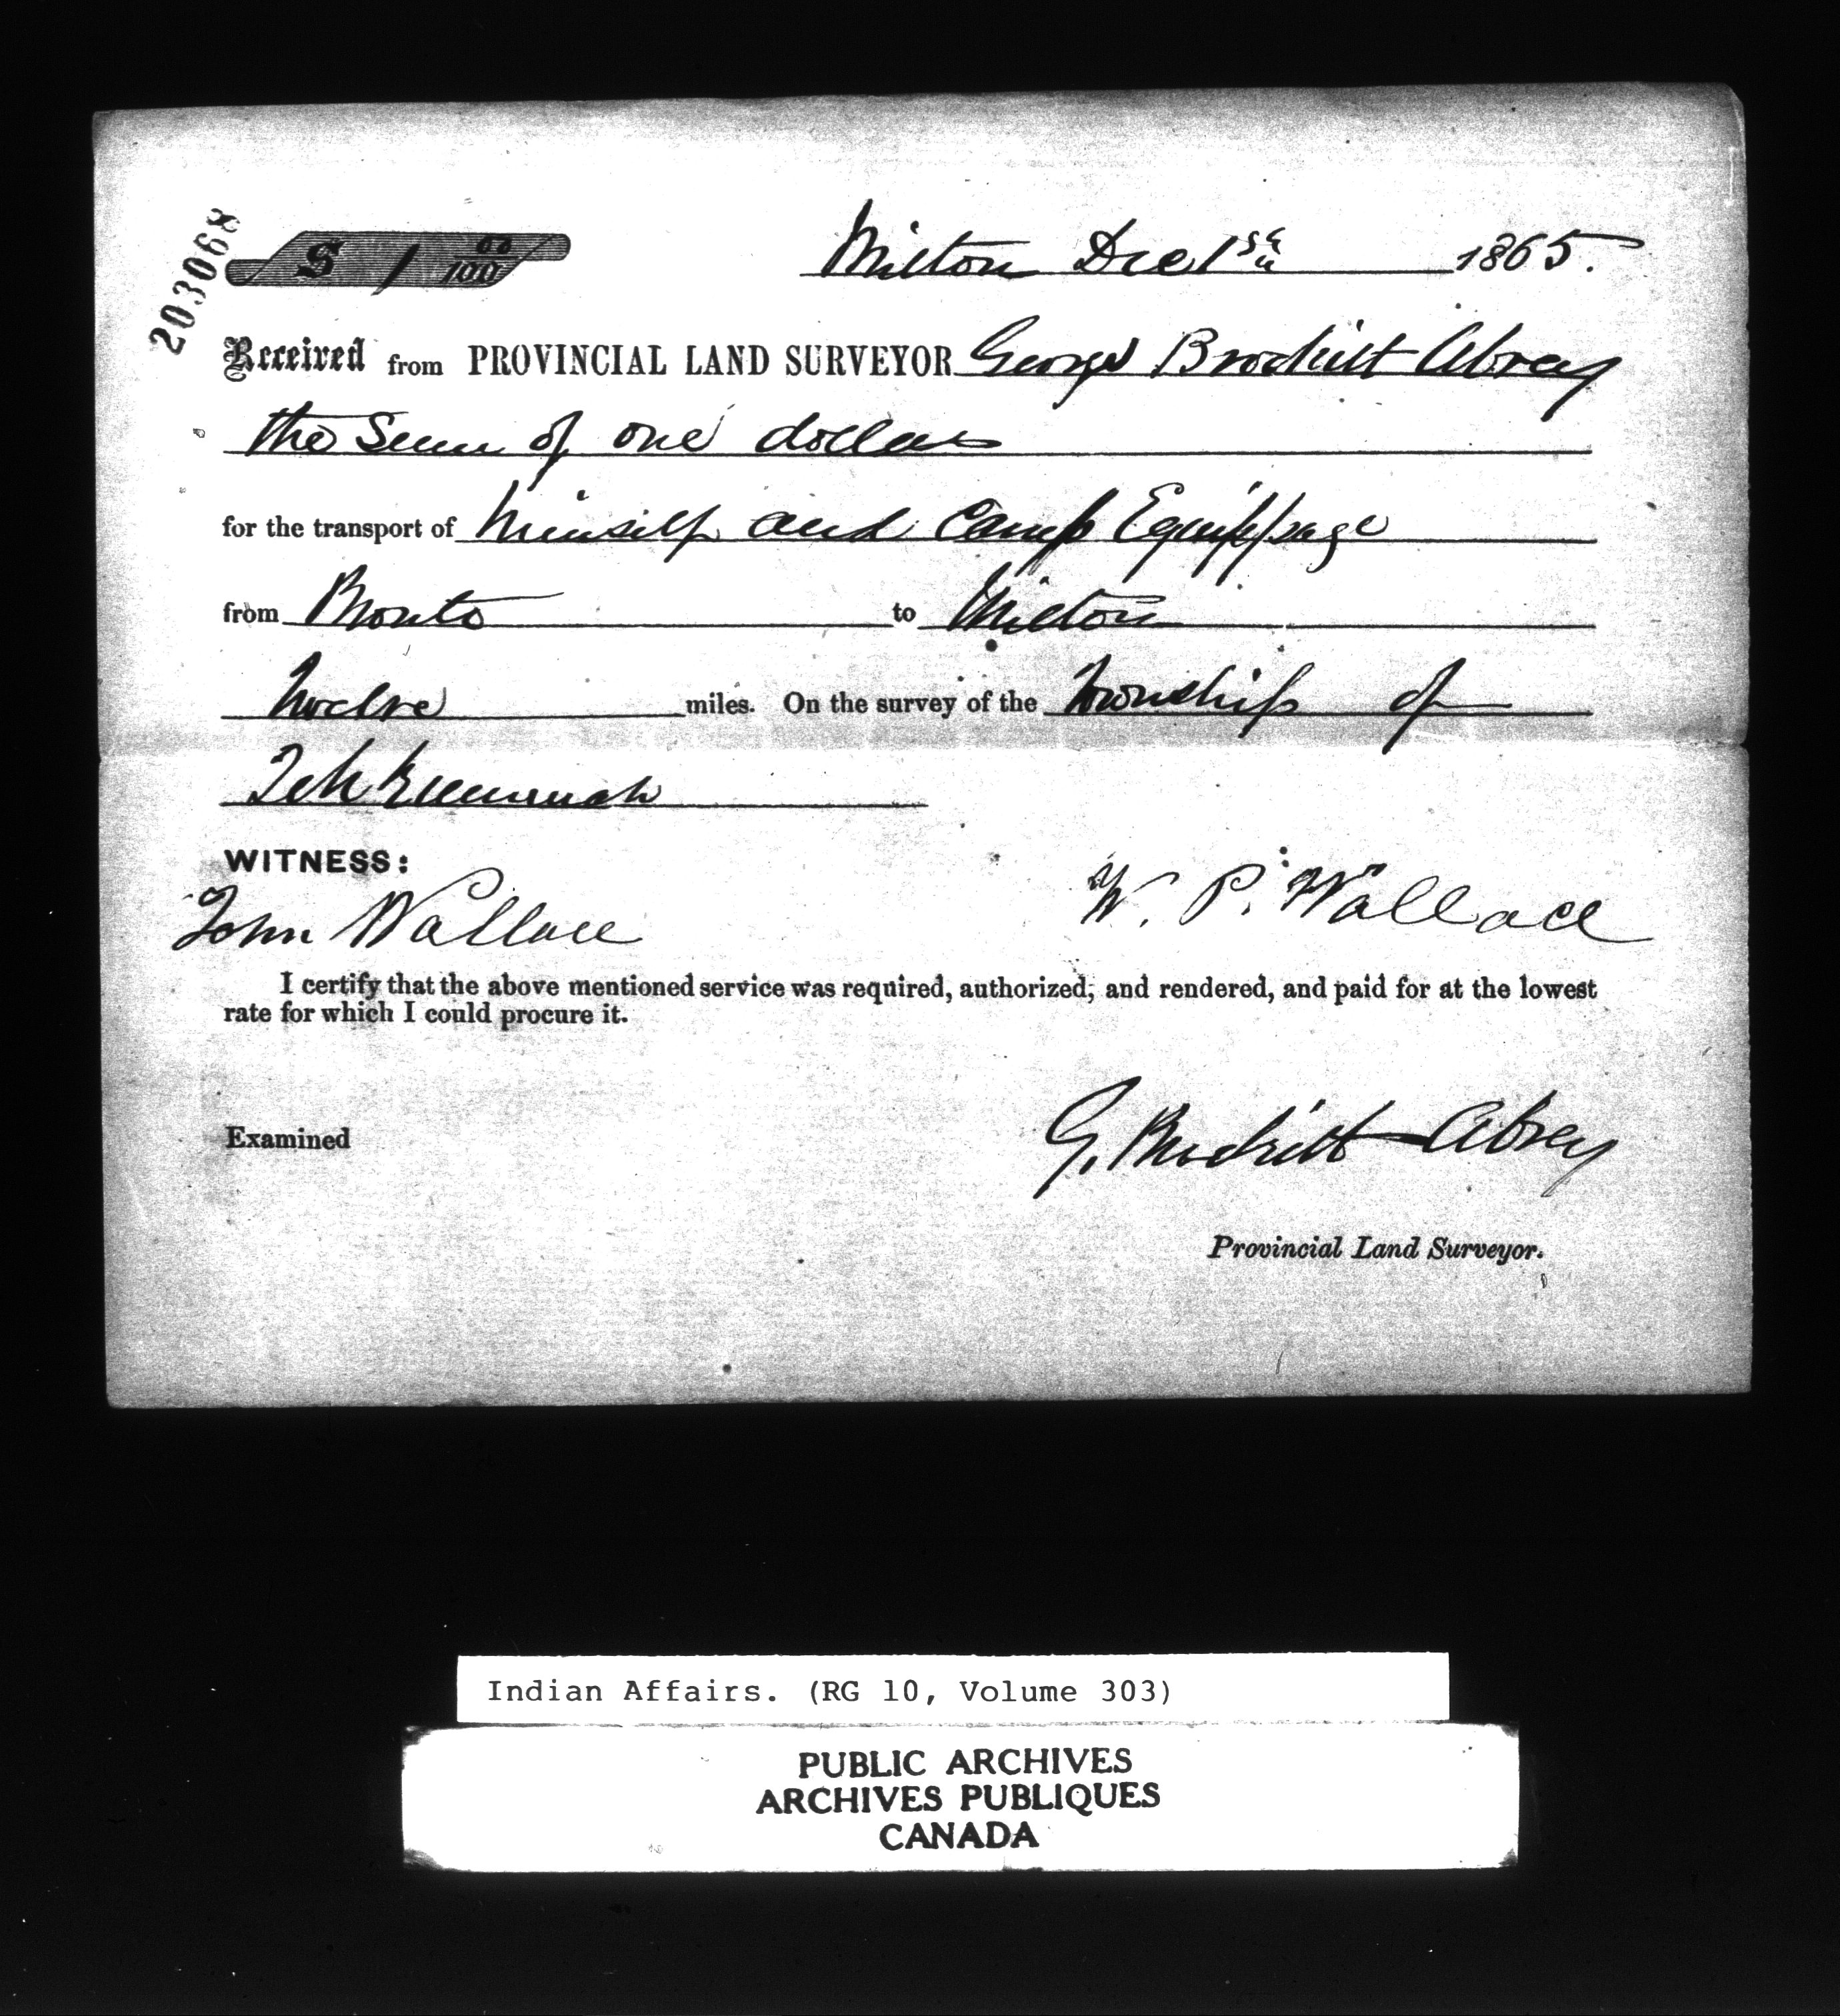 203068
$ 1 00/100
Milton Dec 1st 1865.
Received from PROVINCIAL LAND SURVEYOR George Brockitt Abrey
the Sum of one dollar
for the transport of himself and Camp Equippage
from Bronte to Milton
twelve miles. On the survey of the Township of
Tehkummah
WITNESS:
John Wallace W. P. Wallace
I certify that the above mentioned service was required, authorized, and rendered, and paid for at the lowest
rate for which I could procure it.
Examined
G. Brockitt Abrey
Provincial Land Surveyor.
Indian Affairs. (RG 10, Volume 303)
PUBLIC ARCHIVES
ARCHIVES PUBLIQUES
CANADA